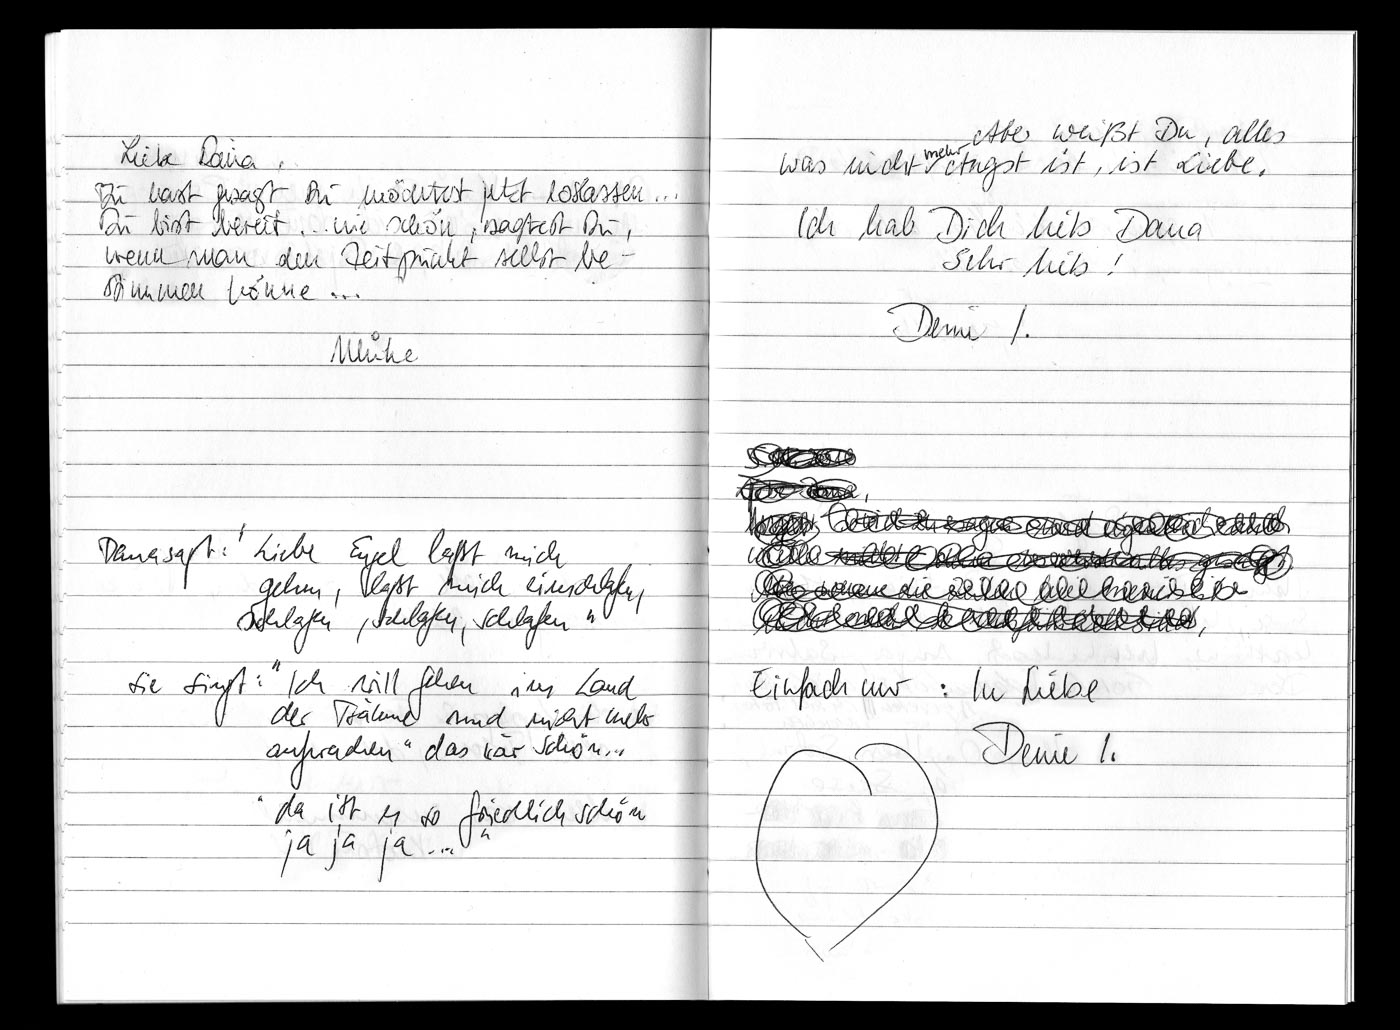 Liebe Dana,
Du hast gesagt Du möchtest jetzt loslassen...
Du bist bereit... wie schön, sagtest Du,
wenn man den Zeitpunkt selbst be-
stimmen könne...
Ulrike
Dana sagt: "Liebe Engel laßt mich
gehen, laßt mich einschlafen,
schlafen, schlafen, schlafen"
Sie singt: "Ich will gehen ins Land
der Träume und nicht mehr
aufwachen" das wär schön...
"da ist es so friedlich schön
ja ja ja..."
Aber weißt Du, alles
was nicht mehr Angst ist, ist Liebe.
Ich hab Dich lieb Dana
Sehr lieb!
Deine I.
Einfach nur: In Liebe
Deine I.